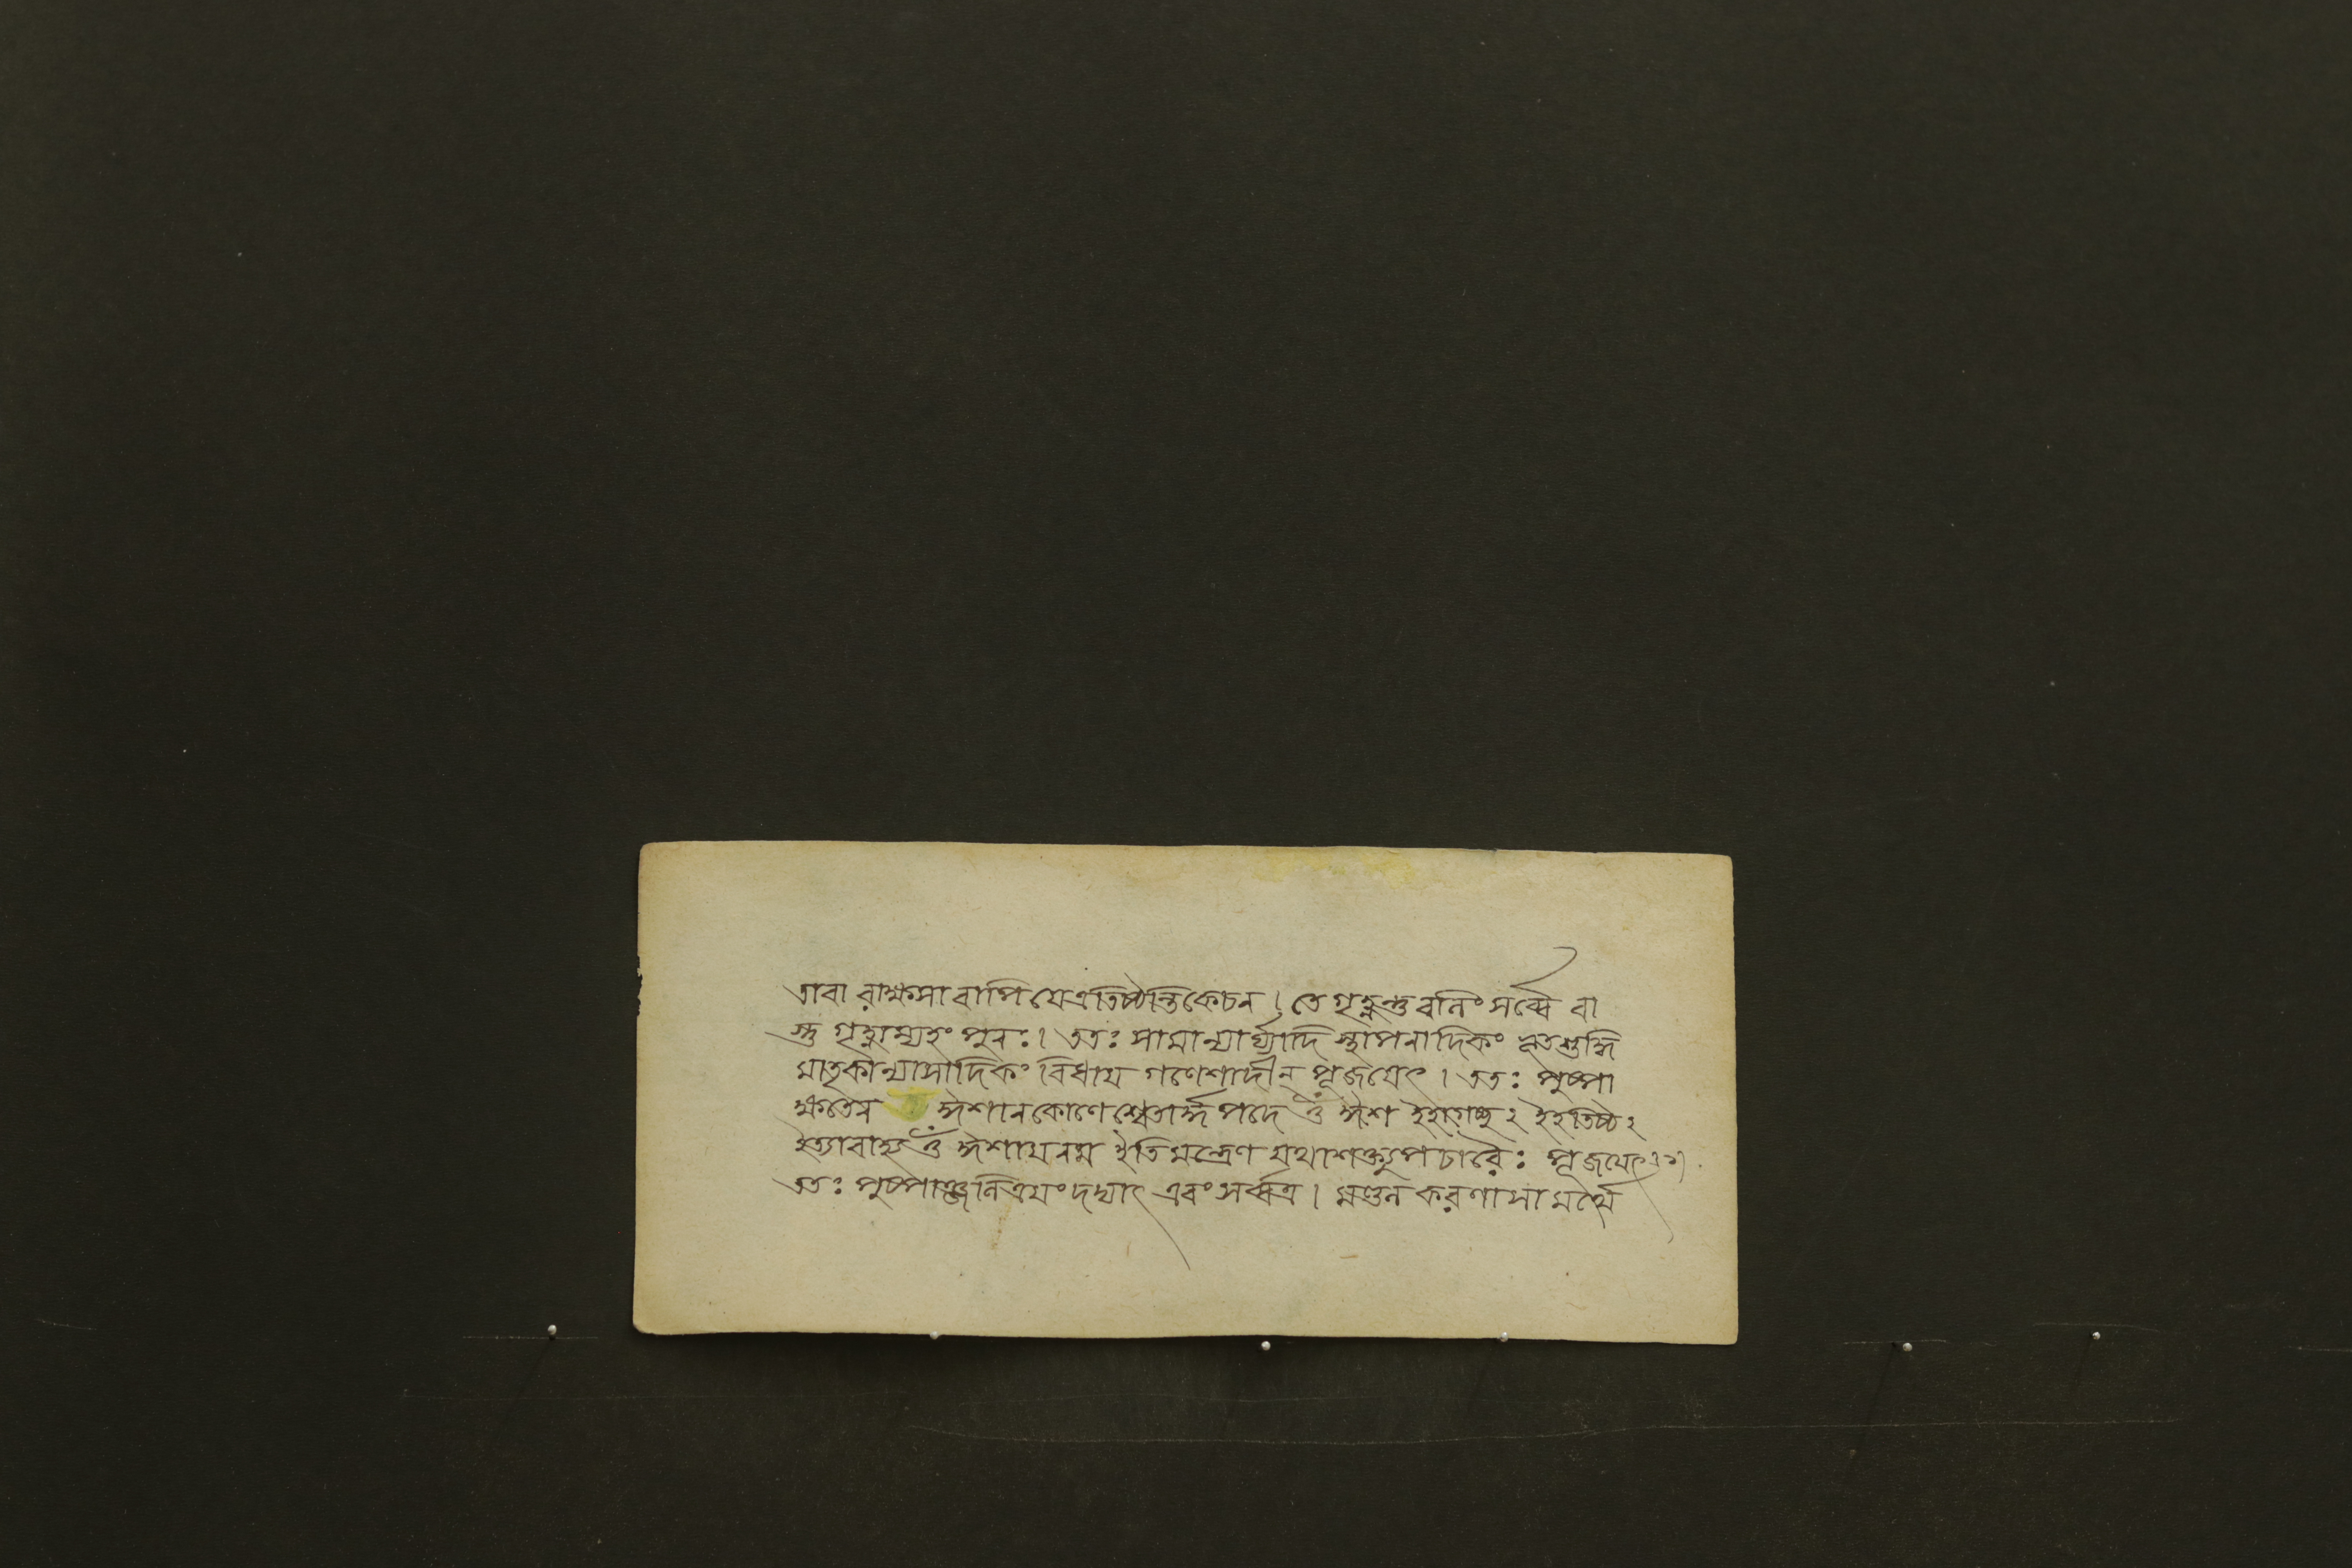 তাবা রাক্ষসা বাপি যেত্র তিষ্ঠন্তি কেচন । তে গৃহ্ণন্তু বলিং সর্ব্বে বা
স্তু গৃহ্ণাম্যহং পুনঃ । ততঃ সামান্যার্ঘ্যাদি স্থাপনাদিকং ভূতশুদ্ধি
মাতৃকান্যাসাদিকং বিধায় গণেশাদীন্ পূজয়েৎ । ততঃ পুষ্পা
ক্ষতেন ঈশানকোণে শ্বেতার্দ্ধপদে ওঁ ঈশ ইহাগচ্ছ২ ইহ তিষ্ঠ২
ইত্যাবাহ্য ওঁ ঈশায় নম ইতি মন্ত্রেণ যথাশক্ত্যুপচারৈঃ পূজয়েৎ
ততঃ পুষ্পাঞ্জলিত্রয়ং দদ্যাৎ এবং সর্ব্বত্র । মণ্ডল করণাসামর্থ্যে